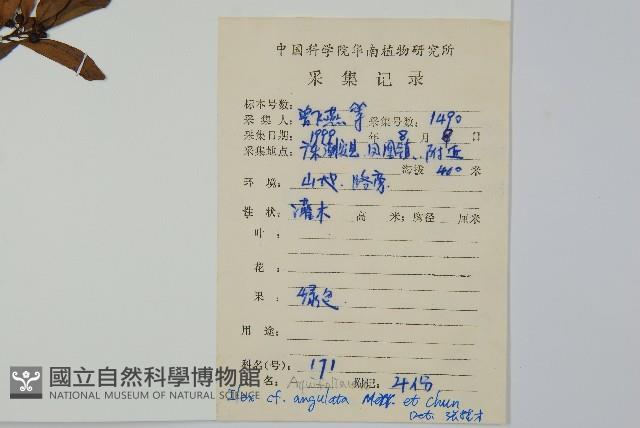 中国科学院华南植物研究所
采集记录
标本号数：
采集人：曾飞燕 等 采集号数：1490
采集日期：1999 年 8 月 9 日
采集地点：深潮安县 凤凰镇 附近
海拔 400 米
环境：山地. 路旁
性状：灌木 高 米；胸径 厘米
叶：
花：
果：绿色
用途：
科名(号)：171
名： 附记：4份
Ilex cf. angulata Merr. et Chun
Det.
國立自然科學博物館
NATIONAL MUSEUM OF NATURAL SCIENCE